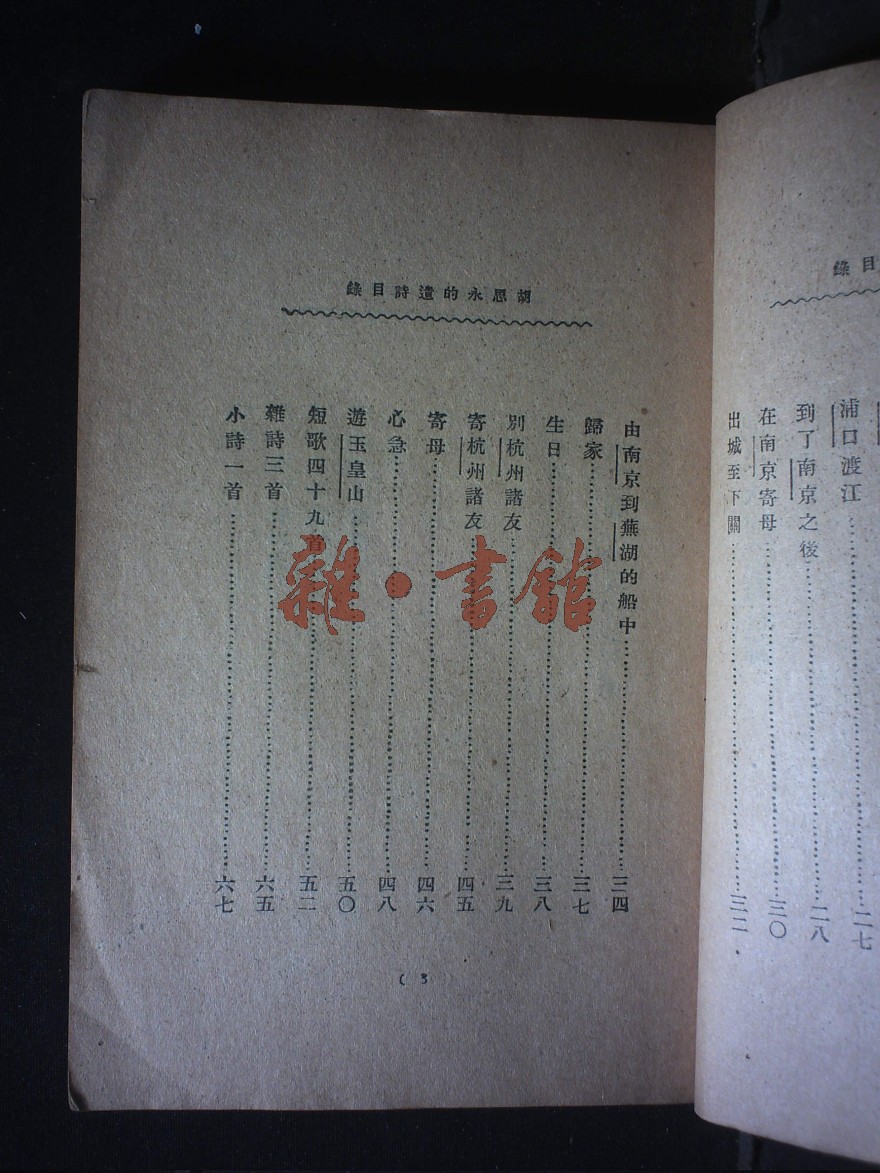 目錄
浦口渡江……二七
到了南京之後……二八
在南京寄母……三〇
出城至下關……三二
胡思永的遺詩目錄
由南京到蕪湖的船中……三四
歸家……三七
生日……三八
別杭州諸友……三九
寄杭州諸友……四五
寄母……四六
心急……四八
遊玉皇山……五〇
短歌四十九首……五二
雜詩三首……六五
小詩一首……六七
(3)
雜·書館